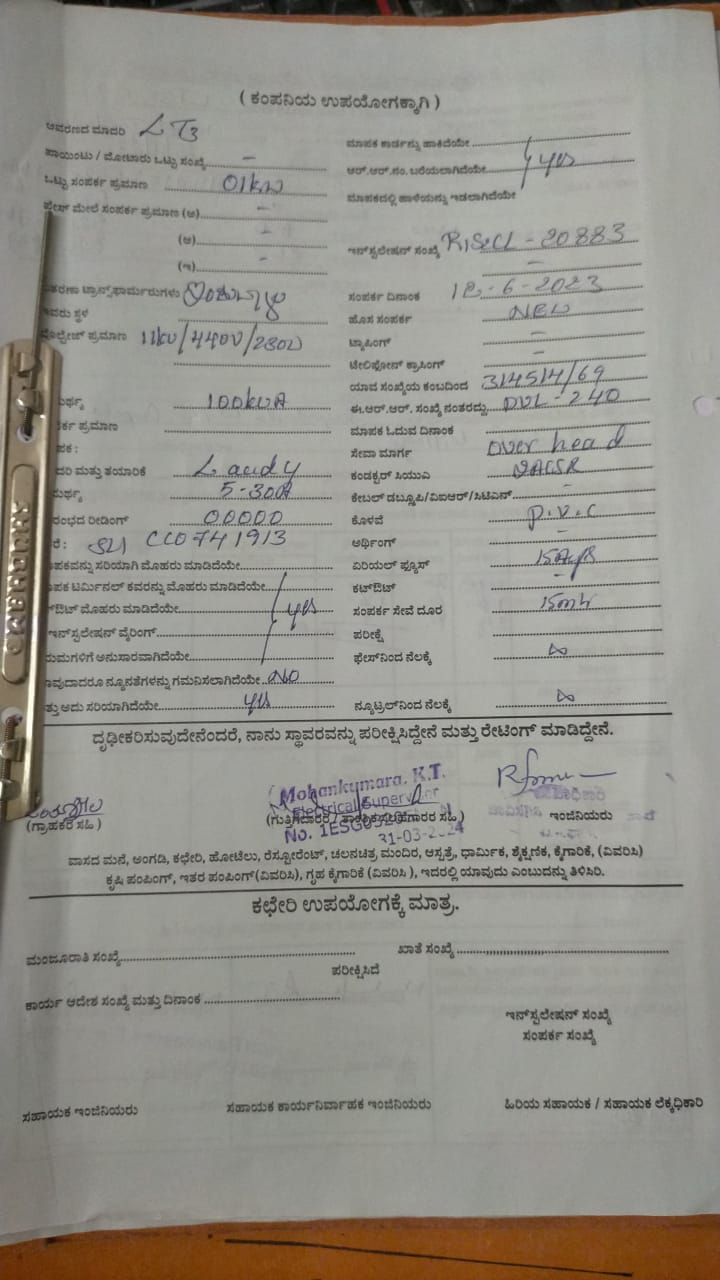 ( ಕಂಪನಿಯ ಉಪಯೋಗಕ್ಕಾಗಿ )
ಆವರಣದ ಮಾದರಿ LT3
ಮಾಪಕ ಕಾರ್ಡನ್ನು ಹಾಕಿದೆಯೇ
ಪಾಯಿಂಟು / ಮೋಟಾರು ಒಟ್ಟು ಸಂಖ್ಯೆ –
ಆರ್.ಆರ್.ನಂ. ಬರೆಯಲಾಗಿದೆಯೇ yes
ಒಟ್ಟು ಸಂಪರ್ಕ ಪ್ರಮಾಣ 01kw
ಮಾಪಕದಲ್ಲಿ ಹಾಳೆಯನ್ನು ಇಡಲಾಗಿದೆಯೇ
ಫೇಸ್ ಮೇಲೆ ಸಂಪರ್ಕ ಪ್ರಮಾಣ (ಅ) –
(ಆ) –
ಇನ್‌ಸ್ಟಲೇಷನ್ ಸಂಖ್ಯೆ 20883
(ಇ) –
ತರಣಾ ಟ್ರಾನ್ಸ್‌ಫಾರ್ಮರುಗಳು
ಸಂಪರ್ಕ ದಿನಾಂಕ 12-6-2023
ಇವರು ಸ್ಥಳ
ಹೊಸ ಸಂಪರ್ಕ NEW
ವೋಲ್ಟೇಜ್ ಪ್ರಮಾಣ 11kv/440v/230v
ಟ್ಯಾಪಿಂಗ್ –
ಟೆಲಿಫೋನ್ ಕ್ರಾಸಿಂಗ್ –
ಯಾವ ಸಂಖ್ಯೆಯ ಕಂಬದಿಂದ 314514/69
ಮರ್ಥ್ಯ 100kvA
ಈ.ಆರ್.ಆರ್. ಸಂಖ್ಯೆ ನಂತರದ್ದು DVL-240
ರ್ಕ ಪ್ರಮಾಣ
ಮಾಪಕ ಓದುವ ದಿನಾಂಕ
ಪಕ :
ಸೇವಾ ಮಾರ್ಗ over head
ದರಿ ಮತ್ತು ತಯಾರಿಕೆ
ಕಂಡಕ್ಟರ್ ಸಿಯುಎ
ಮರ್ಥ್ಯ 5-30A
ಕೇಬಲ್ ಡಬ್ಲೂಪಿ/ವಿಐಆರ್/ಸಿಟಿಎಸ್
ರಂಭದ ರೀಡಿಂಗ್ 00000
ಕೊಳವೆ p.v.c
ರೆ : CC0741913
ಅರ್ಥಿಂಗ್ –
ಪಕವನ್ನು ಸರಿಯಾಗಿ ಮೊಹರು ಮಾಡಿದೆಯೇ
ಏರಿಯಲ್ ಫ್ಯೂಸ್ 15Amps
ಪಕ ಟರ್ಮಿನಲ್ ಕವರನ್ನು ಮೊಹರು ಮಾಡಿದೆಯೇ
ಕಟ್‌ಔಟ್ –
ಔಟ್ ಮೊಹರು ಮಾಡಿದೆಯೇ yes
ಸಂಪರ್ಕ ಸೇವೆ ದೂರ 15mtr
ಇನ್‌ಸ್ಟಲೇಷನ್ ವೈರಿಂಗ್
ಪರೀಕ್ಷೆ
ಯಮಗಳಿಗೆ ಅನುಸಾರವಾಗಿದೆಯೇ
ಫೇಸ್‌ನಿಂದ ನೆಲಕ್ಕೆ ∞
ವುದಾದರೂ ನ್ಯೂನತೆಗಳನ್ನು ಗಮನಿಸಲಾಗಿದೆಯೇ NO
ತ್ತು ಅದು ಸರಿಯಾಗಿದೆಯೇ yes
ನ್ಯೂಟ್ರಲ್‌ನಿಂದ ನೆಲಕ್ಕೆ ∞
ದೃಢೀಕರಿಸುವುದೇನೆಂದರೆ, ನಾನು ಸ್ಥಾವರವನ್ನು ಪರೀಕ್ಷಿಸಿದ್ದೇನೆ ಮತ್ತು ರೇಟಿಂಗ್ ಮಾಡಿದ್ದೇನೆ.
Mohankumara. K.T.
Electrical Supervisor
(ಗ್ರಾಹಕರ ಸಹಿ)
(ಗುತ್ತಿಗೆದಾರರ / ತಾಂತ್ರಿಕ ಸಲಹೆಗಾರರ ಸಹಿ)
ಇಂಜಿನಿಯರು
31-03-2024
ವಾಸದ ಮನೆ, ಅಂಗಡಿ, ಕಛೇರಿ, ಹೋಟೆಲು, ರೆಸ್ಟೋರೆಂಟ್, ಚಲನಚಿತ್ರ ಮಂದಿರ, ಆಸ್ಪತ್ರೆ, ಧಾರ್ಮಿಕ, ಶೈಕ್ಷಣಿಕ, ಕೈಗಾರಿಕೆ, (ವಿವರಿಸಿ)
ಕೃಷಿ ಪಂಪಿಂಗ್, ಇತರ ಪಂಪಿಂಗ್(ವಿವರಿಸಿ), ಗೃಹ ಕೈಗಾರಿಕೆ (ವಿವರಿಸಿ), ಇದರಲ್ಲಿ ಯಾವುದು ಎಂಬುದನ್ನು ತಿಳಿಸಿರಿ.
ಕಛೇರಿ ಉಪಯೋಗಕ್ಕೆ ಮಾತ್ರ.
ಮಂಜೂರಾತಿ ಸಂಖ್ಯೆ
ಖಾತೆ ಸಂಖ್ಯೆ
ಪರೀಕ್ಷಿಸಿದೆ
ಕಾರ್ಯ ಆದೇಶ ಸಂಖ್ಯೆ ಮತ್ತು ದಿನಾಂಕ
ಇನ್‌ಸ್ಟಲೇಷನ್ ಸಂಖ್ಯೆ
ಸಂಪರ್ಕ ಸಂಖ್ಯೆ
ಸಹಾಯಕ ಇಂಜಿನಿಯರು
ಸಹಾಯಕ ಕಾರ್ಯನಿರ್ವಾಹಕ ಇಂಜಿನಿಯರು
ಹಿರಿಯ ಸಹಾಯಕ / ಸಹಾಯಕ ಲೆಕ್ಕಧಿಕಾರಿ